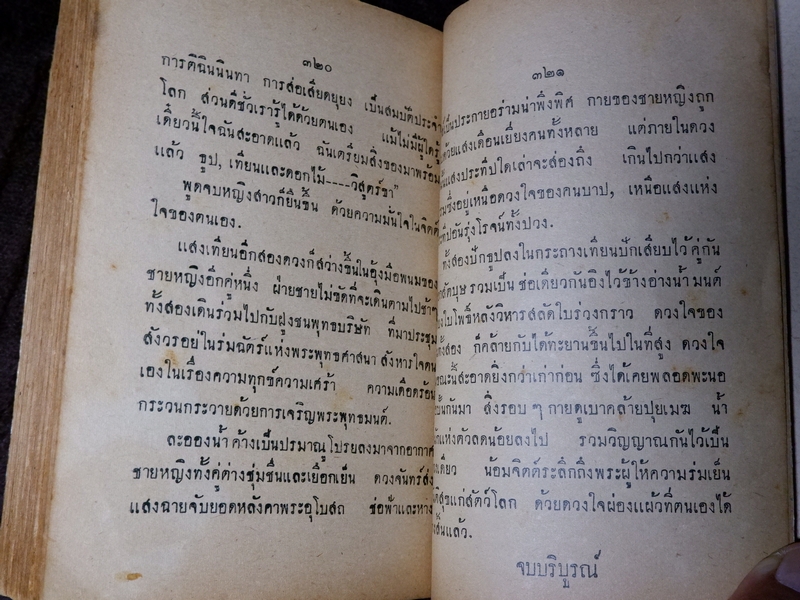 ๓๒๐
การติฉินนินทา การส่อเสียดยุยง เป็นสมบัติประจำ
โลก ส่วนดีชั่วเรารู้ได้ด้วยตนเอง แม้ไม่มีผู้ใดรู้
เดี๋ยวนี้ใจฉันสะอาดแล้ว ฉันเตรียมสิ่งของมาพร้อม
แล้ว ธูป, เทียนและดอกไม้----วิสูตร์ขา”
พูดจบหญิงสาวก็ยืนขึ้น ด้วยความมั่นใจในจิตต์
ใจของตนเอง.
แสงเทียนอีกสองดวงก็สว่างขึ้นในอุ้งมือพนมของ
ชายหญิงอีกคู่หนึ่ง ฝ่ายชายไม่ขัดที่จะเดินตามไปช้าๆ
ทั้งสองเดินร่วมไปกับฝูงชนพุทธบริษัท ที่มาประชุม
สังวรอยู่ในร่มฉัตร์แห่งพระพุทธศาสนา สังหารใจตน
เองในเรื่องความทุกข์ความเศร้า ความเดือดร้อน
กระวนกระวายด้วยการเจริญพระพุทธมนต์.
ละอองน้ำค้างเป็นปรมาณูโปรยลงมาจากอากาศ
ชายหญิงทั้งคู่ต่างชุ่มชื่นและเยือกเย็น ดวงจันทร์ส่ง
แสงฉายจับยอดหลังคาพระอุโบสถ ช่อฟ้าและหาง
๓๒๑
เป็นประกายอร่ามน่าพึ่งพิศ กายของชายหญิงถูก
ด้วยแสงเดือนเยี่ยงคนทั้งหลาย แต่ภายในดวง
แสงประทีปใดเล่าจะส่องถึง เกินไปกว่าแสง
ซึ่งอยู่เหนือดวงใจของคนบาป, เหนือแสงแห่ง
อันรุ่งโรจน์ทั้งปวง.
ทั้งสองปักธูปลงในกระถางเทียนปักเสียบไว้คู่กัน
รวมเป็น ช่อเดียวกันอิงไว้ข้างอ่างน้ำมนต์
ใบโพธิ์หลังวิหารสลัดใบร่วงกราว ดวงใจของ
ทั้งสอง ก็คล้ายกับได้ทะยานขึ้นไปในที่สูง ดวงใจ
สะอาดยิ่งกว่าเก่าก่อน ซึ่งได้เคยพลอดพะนอ
กันมา สิ่งรอบๆ กายดูเบาคล้ายปุยเมฆ น้ำ
แห่งตัวลดน้อยลงไป รวมวิญญาณกันไว้เป็น
เดียว น้อมจิตต์ระลึกถึงพระผู้ให้ความร่มเย็น
แก่สัตว์โลก ด้วยดวงใจผ่องแผ้วที่ตนเองได้
แล้ว.
จบบริบูรณ์